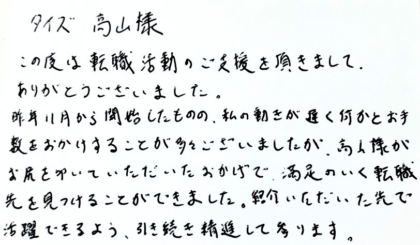 タイズ 高山様
この度は転職活動のご支援を頂きまして、
ありがとうございました。
昨年11月から開始したものの、私の動きが遅く何かとお手
数をおかけすることが多々ございましたが、高山様が
お尻を叩いていただいたおかげで、満足のいく転職
先を見つけることができました。紹介いただいた先で
活躍できるよう、引き続き精進して参ります。